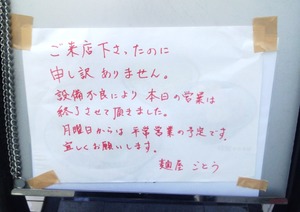 ご来店下さったのに
申し訳ありません。
設備不良により本日の営業は
終了させて頂きました。
月曜日からは平常営業の予定です。
宜しくお願いします。
麺屋 ごとう